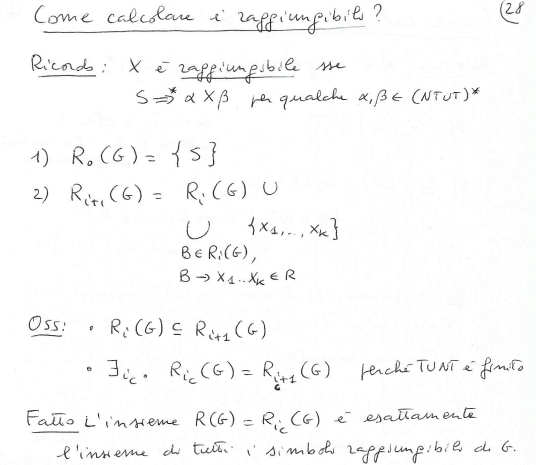 (28
Come calcolare i raggiungibili?
Ricorda: X è raggiungibile sse
S ⇒* α X β per qualche α, β ∈ (NT∪T)*
1) R₀(G) = {S}
2) Rᵢ₊₁(G) = Rᵢ(G) ∪
∪ {X₁, ..., Xₖ}
B ∈ Rᵢ(G),
B → X₁..Xₖ ∈ R
Oss: • Rᵢ(G) ⊆ Rᵢ₊₁(G)
• ∃i_c. R_{i_c}(G) = R_{i_c+1}(G) perché T∪NT è finito
Fatto L'insieme R(G) = R_{i_c}(G) è esattamente
l'insieme di tutti i simboli raggiungibili di G.